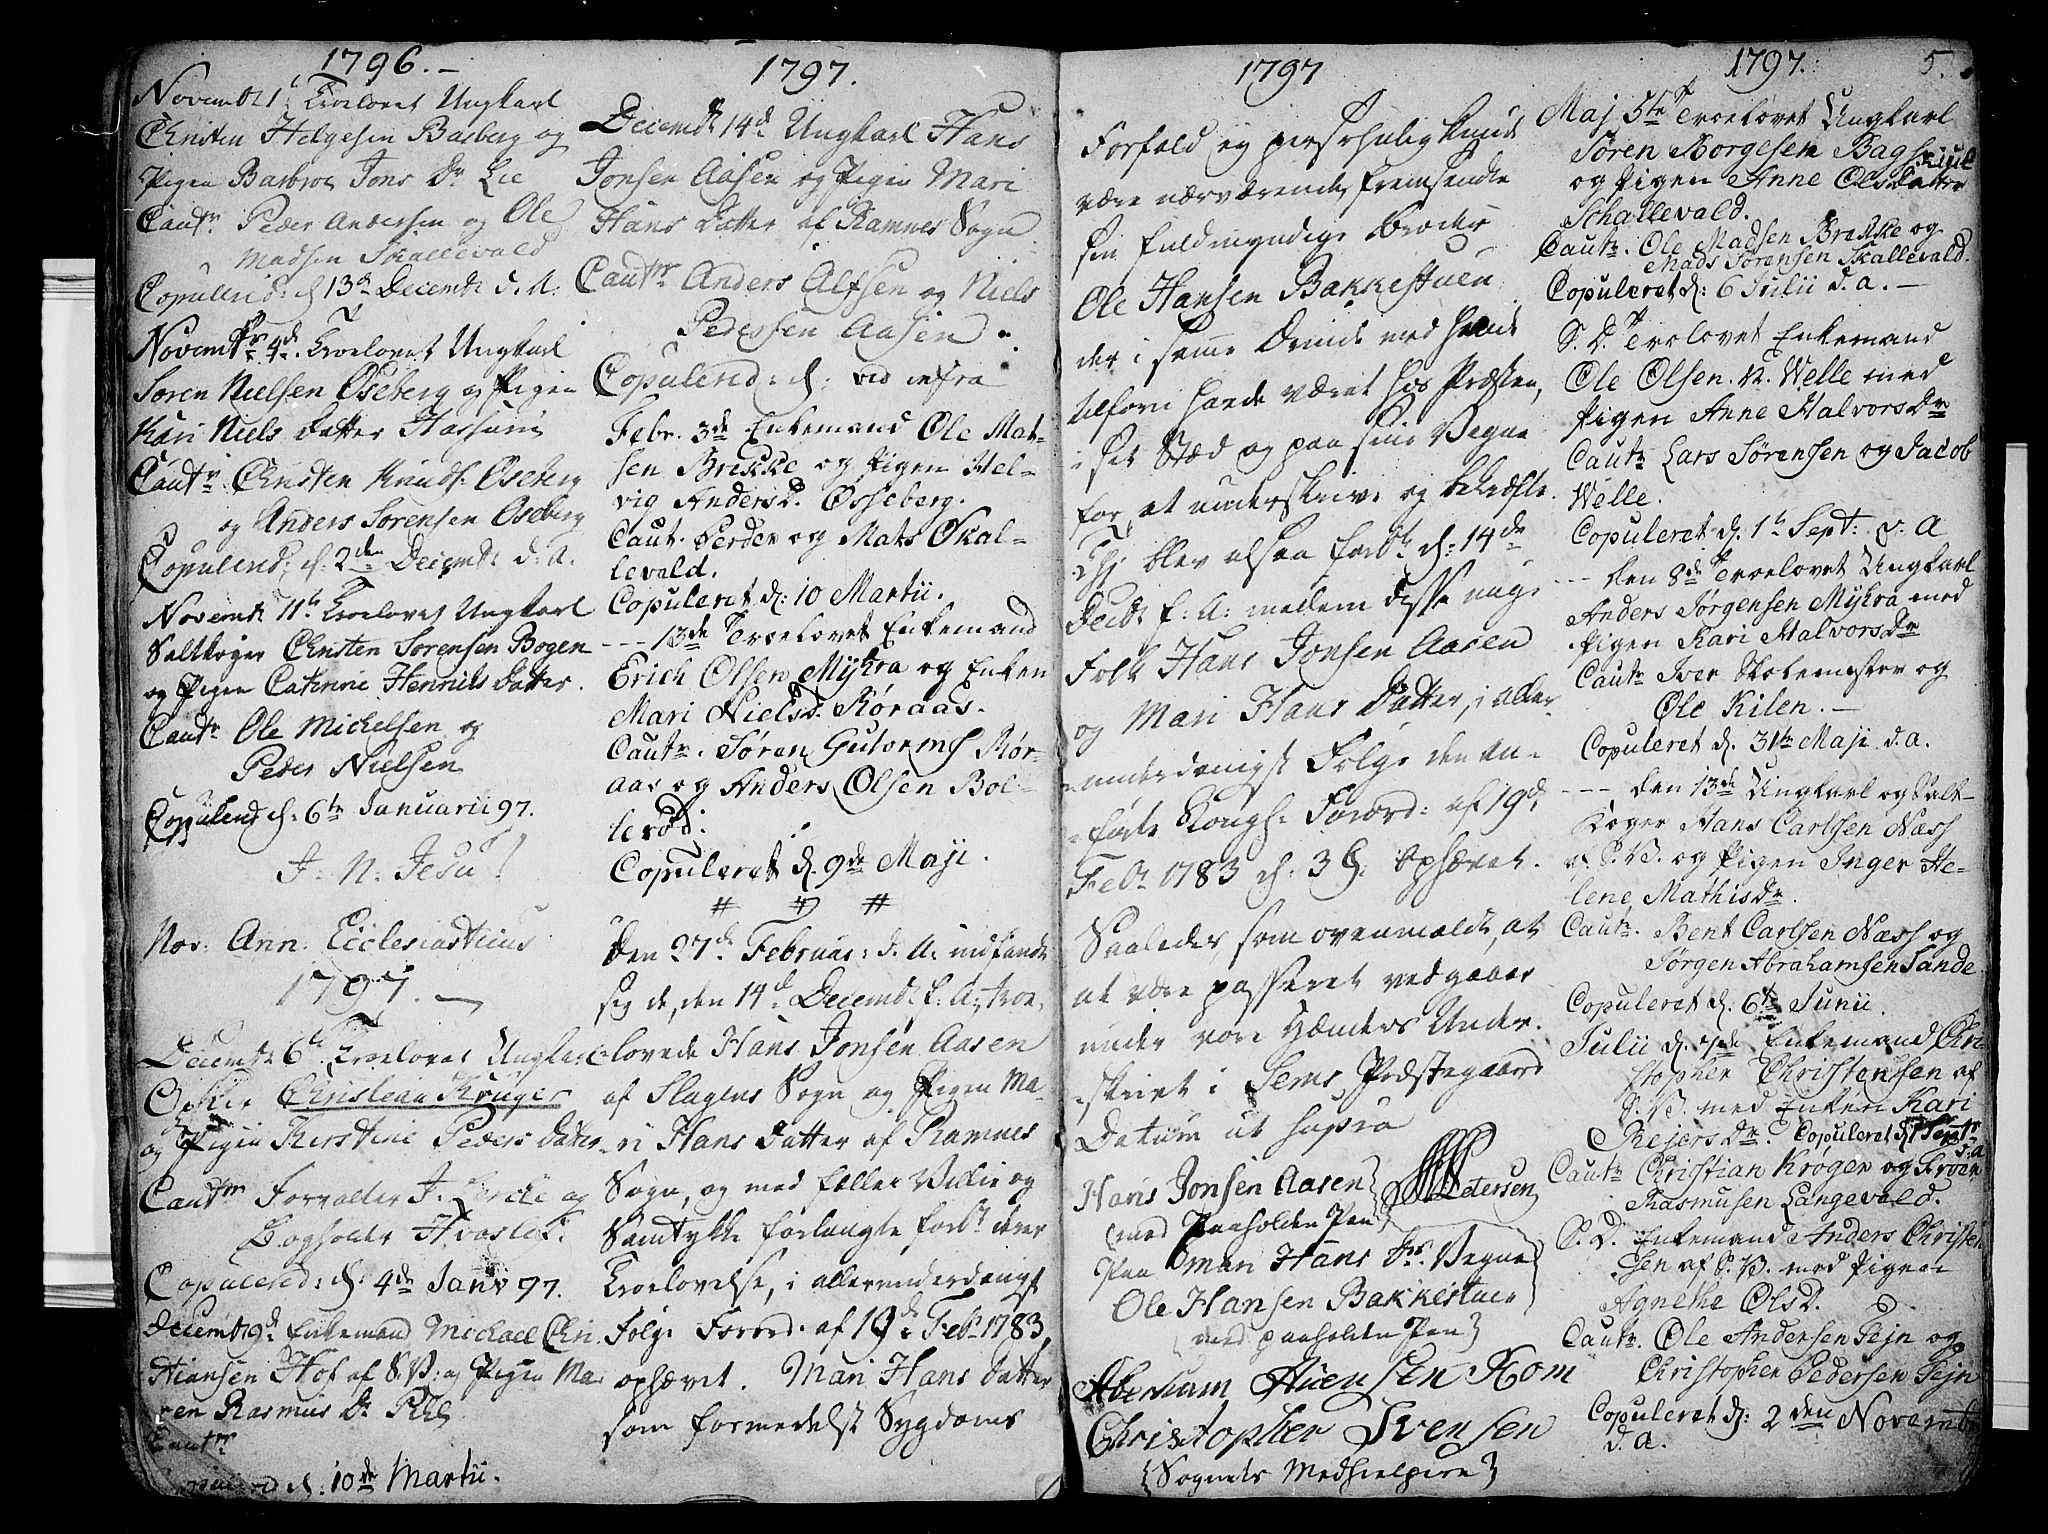 1796.
Novembr 1t Troelovet Ungkarl
Christen Helgesen Basberg og
Pigen Barbroe Jons Dr Lie
Cautr Peder Andersen og Ole
Madsen Skallevald
Copulered: d. 13de Decembr d. A:
Novembr 4de Troelovet Ungkarl
Soren Nielsen Oseberg og Pigen
Kari Niels Datter
Cautr Christen Knuds. Oseberg
og Anders Sorensen Oseberg
Copulered: d. 2den Decembr d. A.
Novembr 11te Troelovet Ungkarl
Saltkoger Christen Sorensen Bogen
og Pigen Catrine Henriks Datter.
Cautr Ole Michelsen og
Peder Nielsen
Copulered d: 6te Januarii 97.
J. N. Jesu!
Nov: Ann. Ecclesiasticus
1797.
Decembr 6te Troelovet Ungkarl
Christian Krüger
og Pigen Kirstine Peders Datter
Cautr Forvalter J.
Bogholder
Copulered: d: 4de Janr 97.
Decembr 9de Enkemand Michael Chri
stiansen Hof af S. V: og Pigen Ma-
ren Rasmus Dr
Cautr
d. 10de Martii.
1797.
Decembr 14de Ungkarl Hans
Jonsen Aasen og Pigen Mari
Hans Datter af Ramnes Sogn
Cautr Anders Alfsen og Niels
Pedersen Aasen.
Copulered: d: vid infra
Febr. 3de Enkemand Ole Mat-
sen Brekke og Pigen Hel-
vig Anders D. Osseberg.
Caut. Perder og Mats Skal-
levald.
Copuleret d: 10 Martii.
--- 13de Troelovet Enkemand
Erich Olsen Myhra og Enken
Mari Nielsd. Røraas.
Cautr. Søren Gutormss Rør-
aas og Anders Olsen Bol-
lerød.
Copuleret d. 9de Maji.
# # #
Den 27de Februar: d. A: indfandt
sig de, den 14de Decembr f. A: troe-
lovede Hans Jonsen Aasen
af Slagens Sogn og Pigen Ma-
ri Hans Datter af Ramnes
Sogn, og med fælles Villie og
Samtykke forlangte deres
Troelovelse, i allerunderdanigst
Følge Forord. af 19de Febr 1783,
ophævet. Mari Hans Datter
som formedelst Sygdoms
1797
Forfald ej personlig kunde
være nærværende, fremsendte
sin fuldmyndige Broder
Ole Hansen Bakkestuen
der i samme Ærinde med hende
tilforn havde været hos Præsten,
i det Stæd og paa sine Vegne
for at underskrive og bekræfte.
Thj blev altsaa d: 14de
Decbr f: A: mellem disse unge
Folk Hans Jonsen Aasen
og Mari Hans Datter, i aller-
underdanigst Følge den an-
førte Kongl: Forord: af 19de
Febr 1783 d. 3 §. ophævet.
Saaledes, som ovenmeldt, at
at være passeret vedgaaes
under vore Hænders Under-
skrivt i Sems Præstegaard
Datum ut supra
Hans Jonsen Aasen Petersen
(med paaholden Pen)
Paa Mari Hans Drs. Vegne
Ole Hansen Bakkestuen
{med paaholden Pen}
Aberham Auensen Rom
Christopher Ivensen
{Sognets Medhielpere}
1797. 5.
Maj 5te Troelovet Ungkarl
Søren Borgesen Bagskiul
og Pigen Anne Olsdatter
Schallevald.
Cautr. Ole Madsen Brekke og
Mads Sørensen Skallevald.
Copuleret d: 6 Julii d. a. —
S. D. Trolovet Enkemand
Ole Olsen N. Welle med
Pigen Anne HalvorsDr
Cautr Lars Sørensen og Jacob
Welle.
Copuleret d. 1te Sept: d. A
--- den 8de Troelovet Ungkarl
Anders Jørgensen Myhra med
Pigen Kari HalvorsDr
Cautr Iver Skolemester og
Ole Kilen. —
Copuleret d. 31te Maji d. a.
--- den 13de Ungkarl og Salt-
Koger Hans Carlsen Næss
af S. V. og Pigen Inger He-
lene MathisDr.
Cautr. Bent Carlsen Næss og
Jørgen Abrahamsen Sande
Copuleret d. 6te Junii.
Julii d. 7de Enkemand Chri
stopher Christensen af
S. V. med Enken Kari
Rejers Dr. Copuleret d 1 Septr
d. a
Cautr Christian Krøger og Iver
Rasmusen Langevald.
S. D. Enkemand Anders Christen
sen af S. V. med Pigen
Agnethe OlsD.
Cautr. Ole Andersen Fejn og
Christopher Pedersen Fejn
Copuleret d: 2den Novembr
d. a.